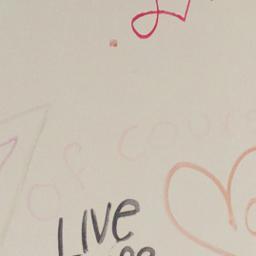 of course
LIVE